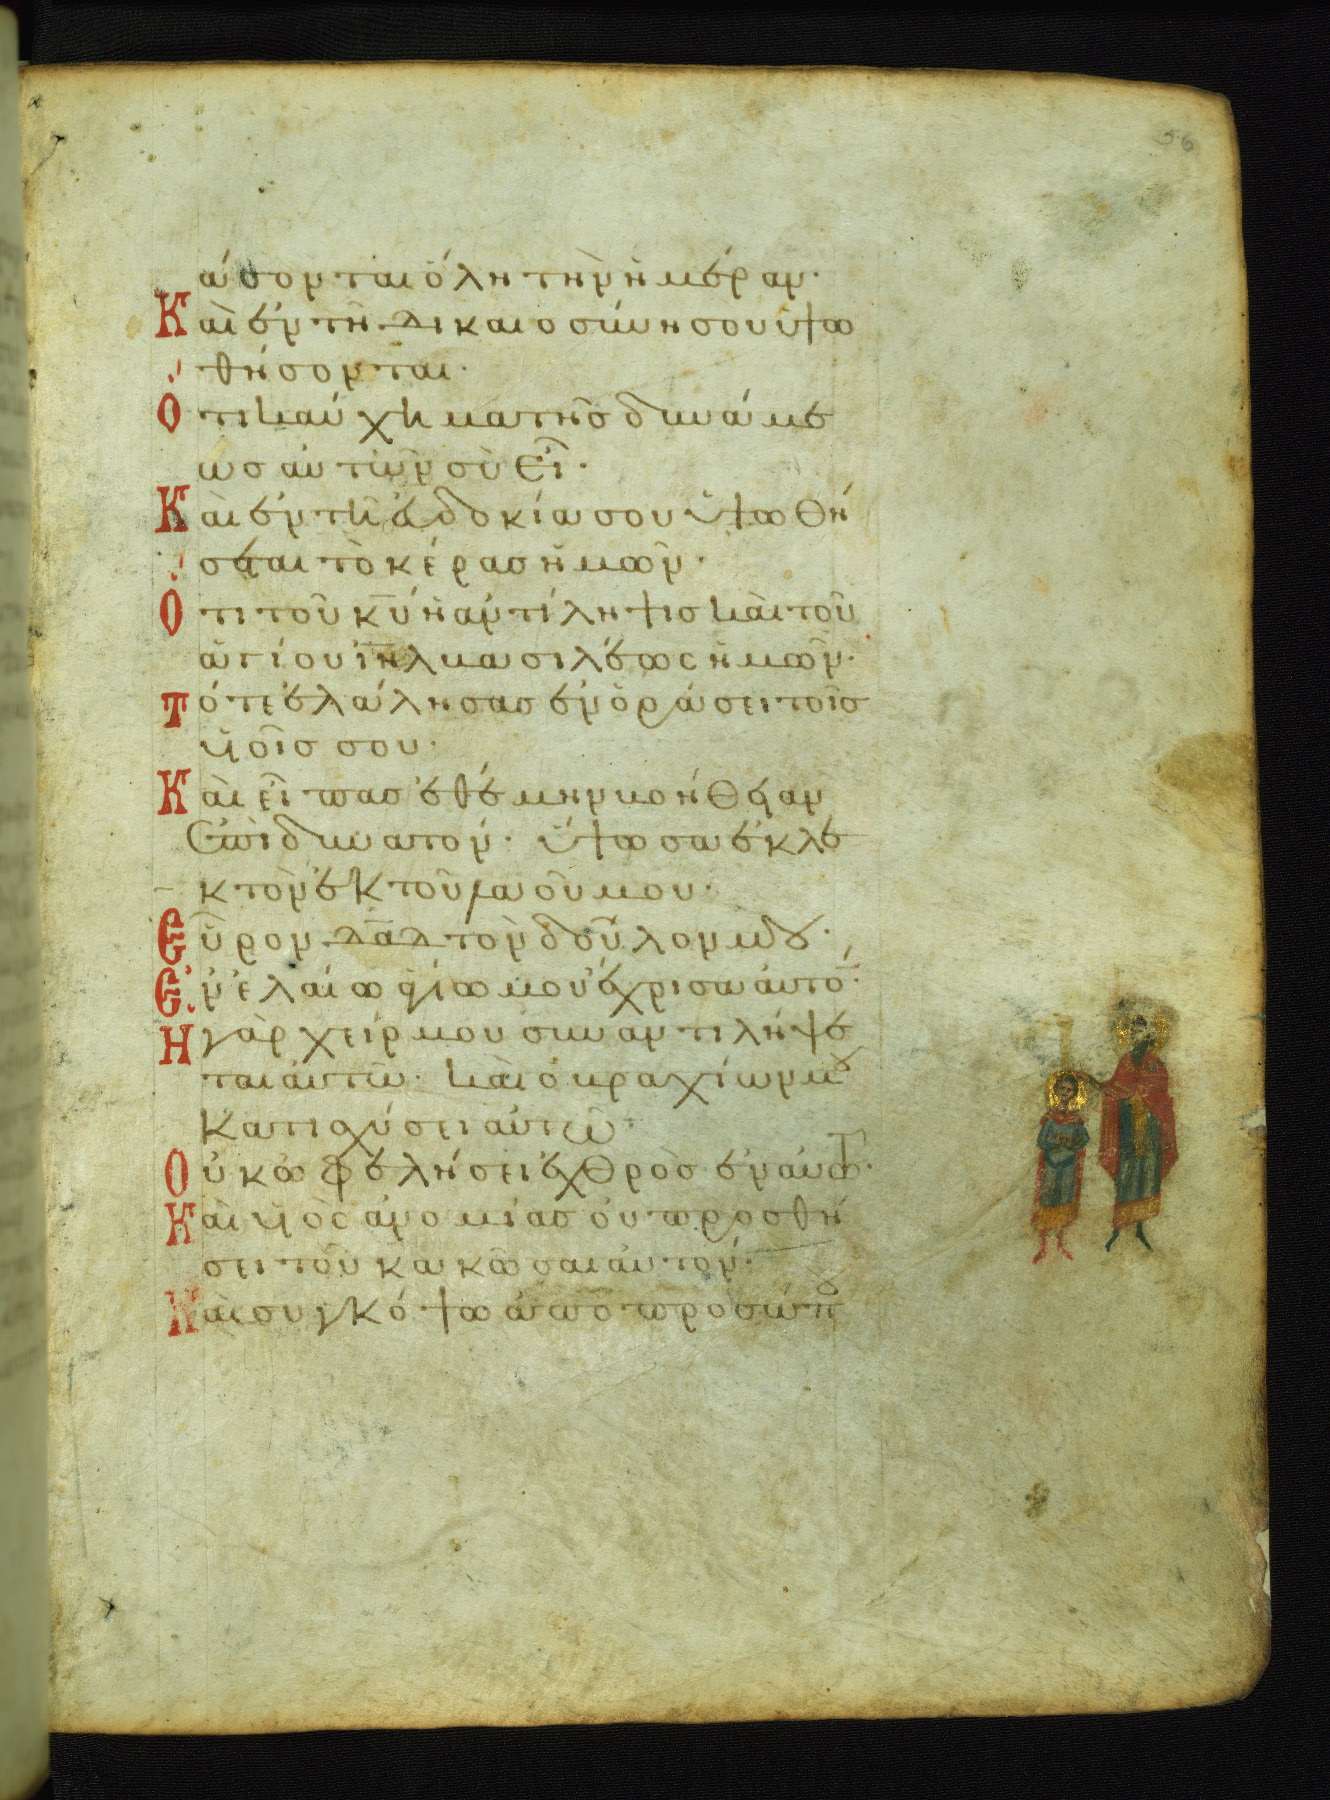 56
άσονται ὅλη τὴν ἡμέραν·
Καὶ ἐν τῆ δικαιοσύνη σου ὑψω
θήσονται·
Ὅτι καύχημα τῆσ δυνάμε
ωσ αὐτῶν σὺ εἶ·
Καὶ ἐν τῆ εὐδοκία σου ὑψωθή
σεται τὸ κέρασ ἡμῶν·
Ὅτι τοῦ κ̅υ̅ ἡ ἀντίληψισ καὶ τοῦ
ἁγίου ι̅η̅λ̅ βασιλέως ἡμῶν·
Τότε ἐλάλησασ ἐν ὁράσει τοῖσ
υἱοῖσ σου·
Καὶ εἶπασ ἐθέμην βοήθειαν
ἐπὶ δυνατόν· ὕψωσα ἐκλε
κτὸν ἐκ τοῦ λαοῦ μου·
Εὗρον δ̅α̅δ̅ τὸν δοῦλον μου·
Ἐν ἐλαίω ἁγίω μου ἔχρισα ἀυτό̅·
Ἡ γὰρ χείρ μου συναντιλήψε
ται ἀυτῶ· καὶ ὁ βραχίων μου
κατισχύσει ἀυτῶ·
Οὐκ ὠφελήσει ἐχθρὸσ ἐν ἀυτῶ·
Καὶ υἱὸς ἀνομίασ οὐ προσθή
σει τοῦ κακῶσαι ἀυτόν·
Καὶ συγκόψω ἀπὸ προσώπου